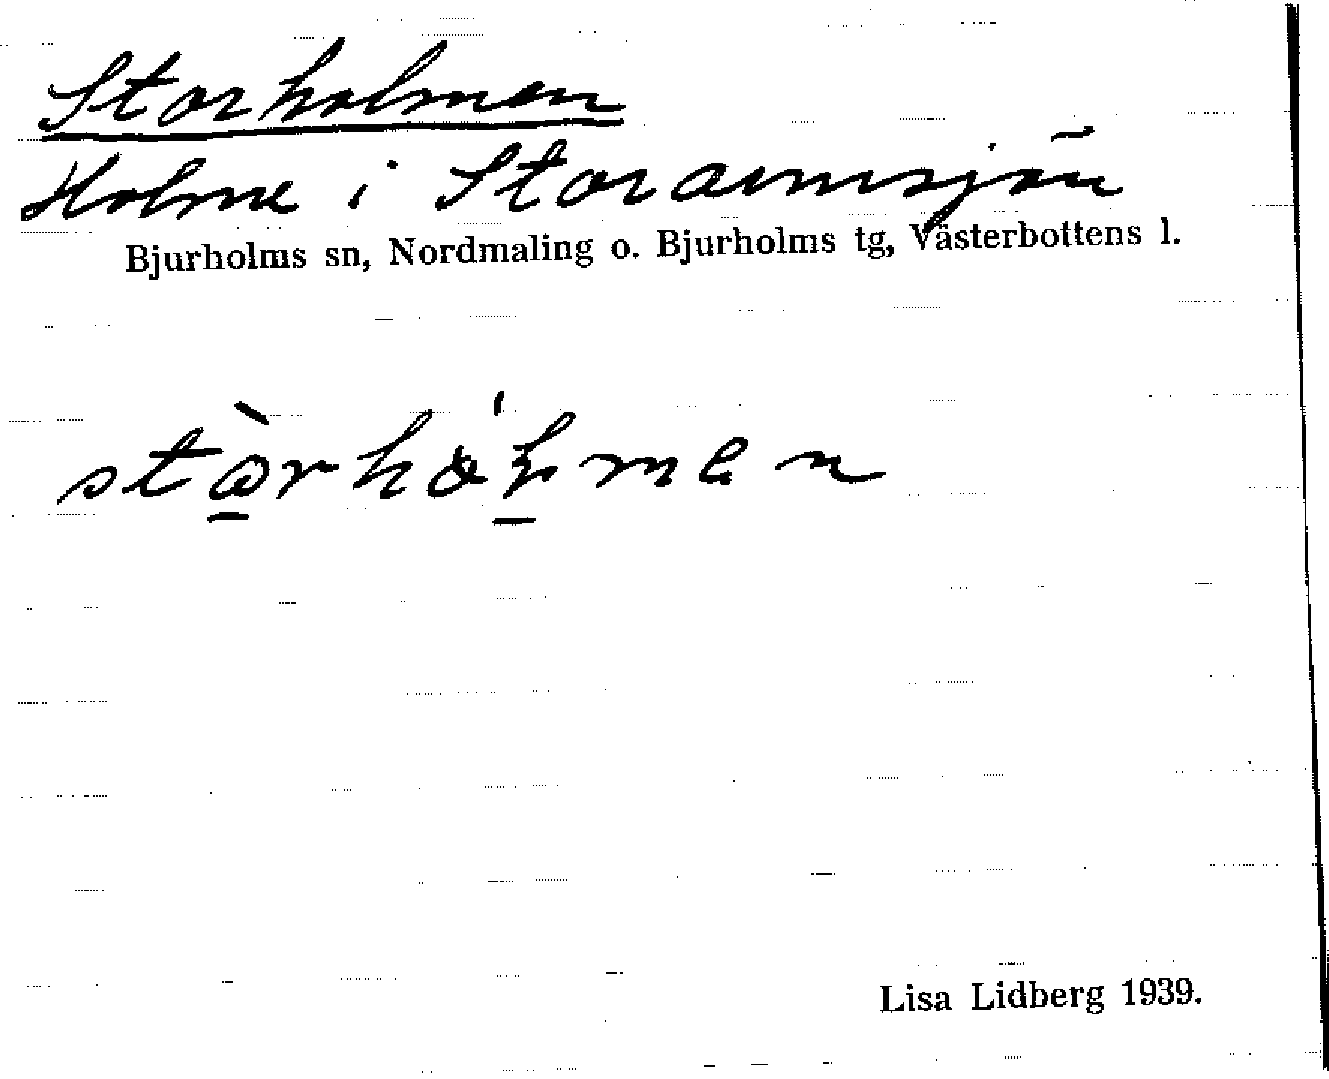 Storholmen
Holme i Storarmsjön
Bjurholms sn, Nordmaling o. Bjurholms tg, Västerbottens l.
Lisa Lidberg 1939.